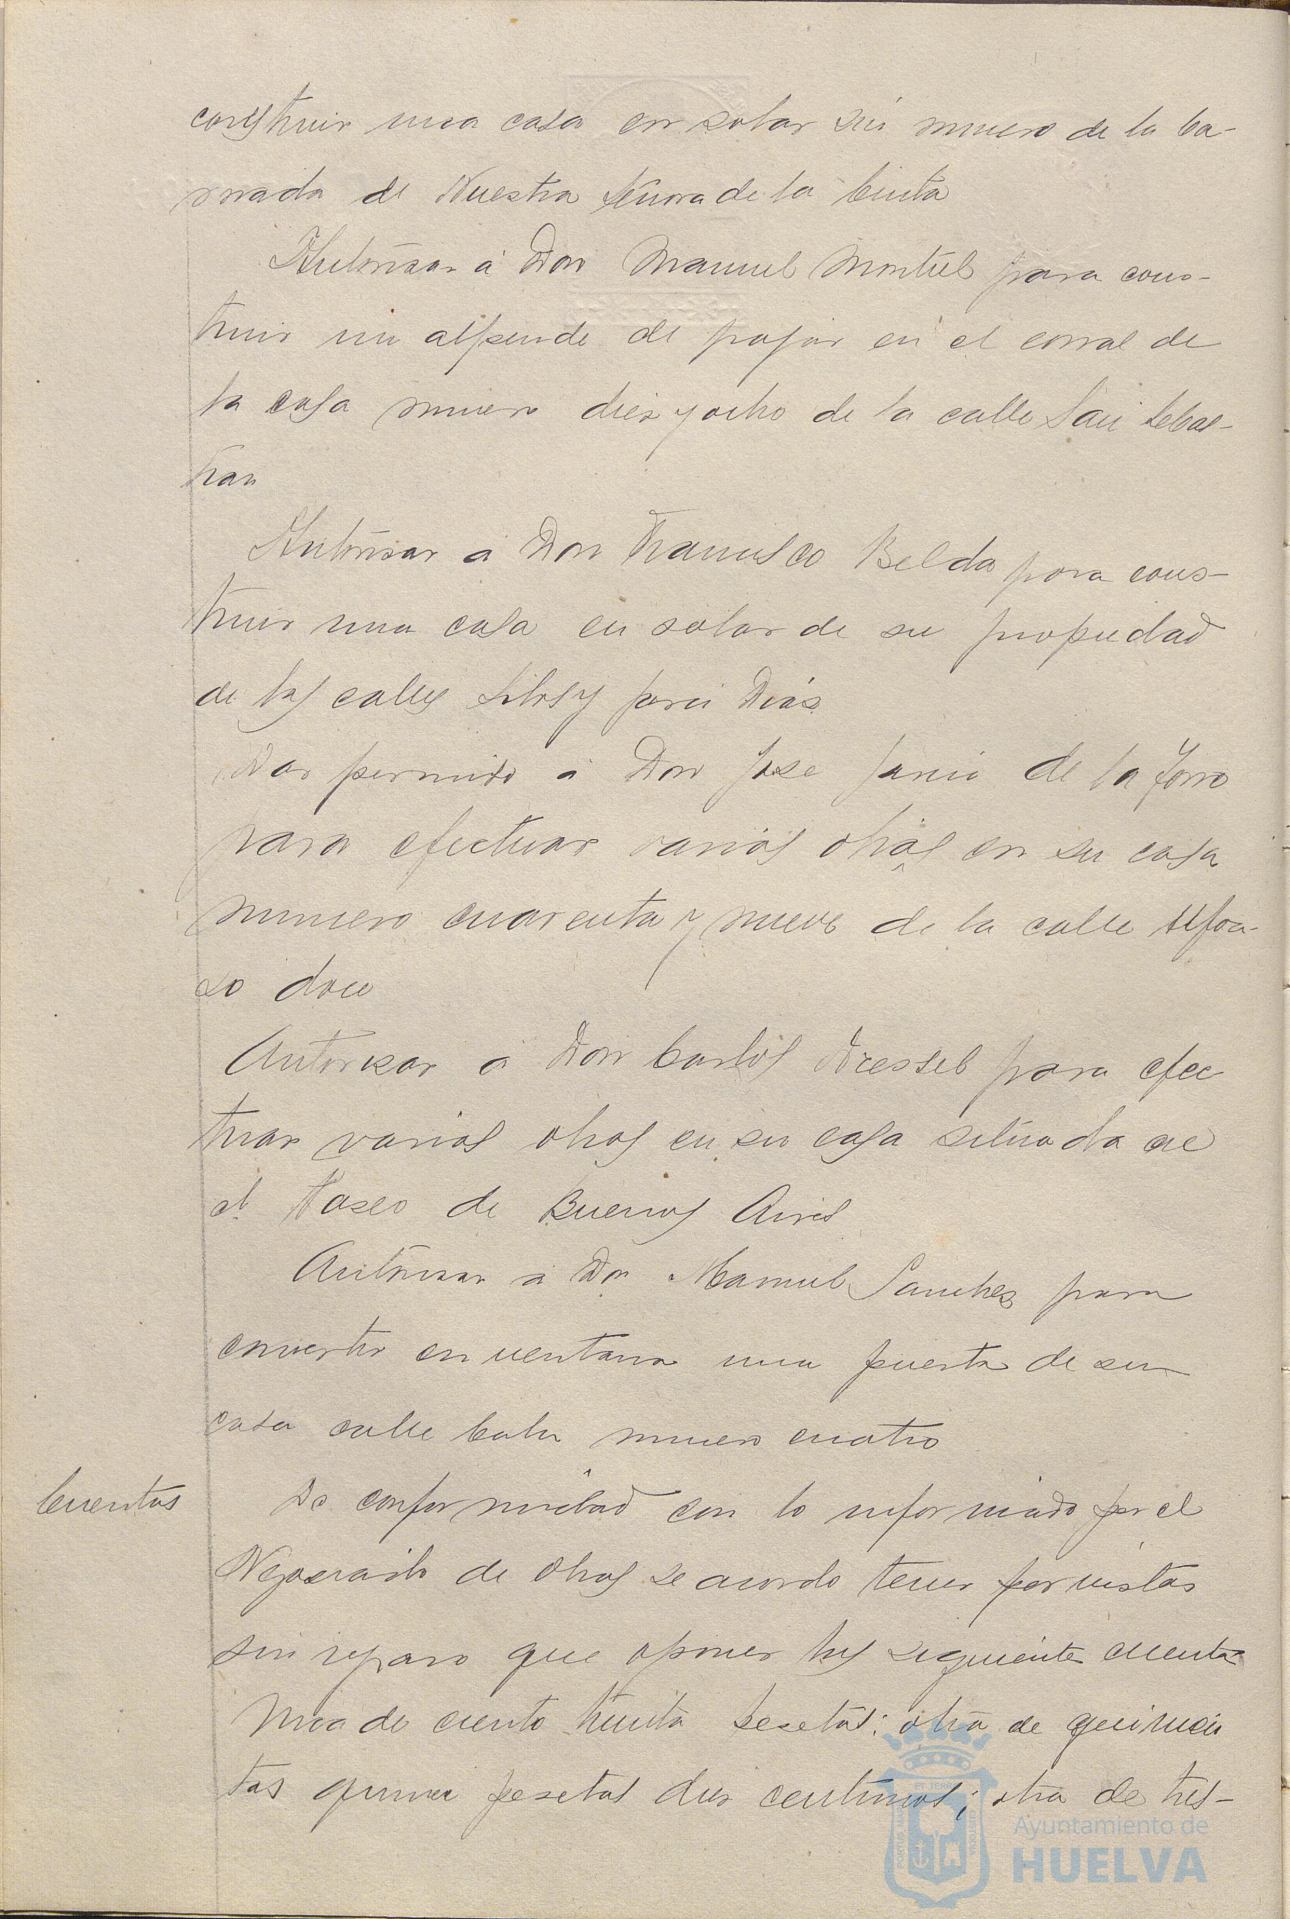 construir una casa en solar sin numero de la ba-
rriada de Nuestra Señora de la Cinta
Autorisar á Don Manuel Montiel para cons-
truir un alpende de pajar en el corral de
la casa numero diez y ocho de la calle San Sebas-
tian
Autorisar á Don Francisco Belda para cons-
truir una casa en solar de su propiedad
de las calles Silos y Garci Dias
Dar permiso á Don Jose Garcia de la Torre
para efectuar varias obras en su casa
numero cuarenta y nueve de la calle Alfon-
so doce
Autorizar á Don Carlos Dressel para efec
tuar varias obras en su casa situada en
el Paseo de Buenos Aires
Autorisar á Don Manuel Sanches para
convertir en ventana una puerta de su
casa calle Cala numero cuatro
Cuentas
De conformidad con lo informado por el
Negociado de Obras se acordo tener por vistas
sin reparo que oponer las siguientes cuentas
Una de ciento treinta pesetas: otra de quinien
tas quince pesetas diez centimos; otra de tres-
Ayuntamiento de
HUELVA